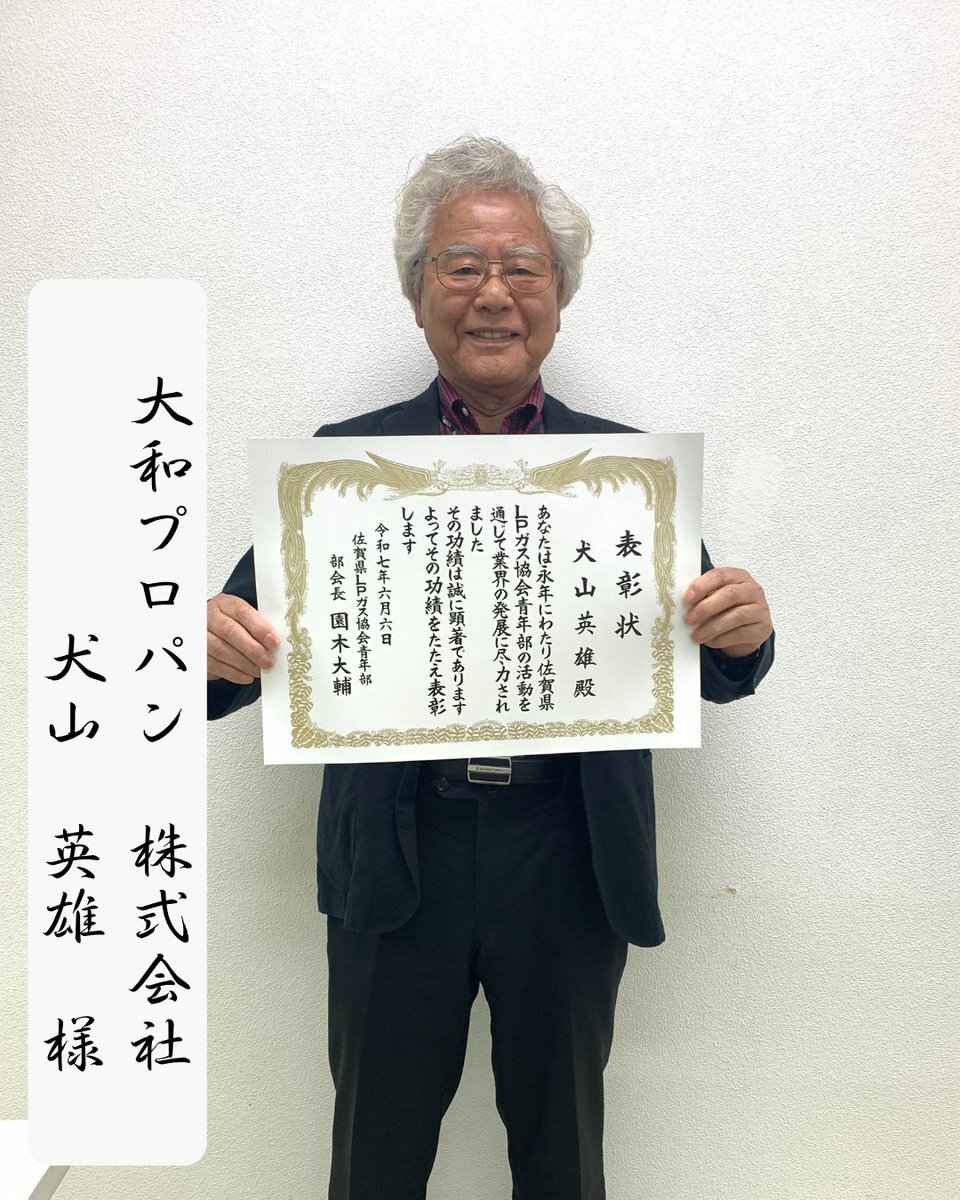 表彰状
犬山英雄殿
あなたは永年にわたり佐賀県
LPガス協会青年部の活動を
通じて業界の発展に尽力され
ました
その功績は誠に顕著であります
よってその功績をたたえ表彰
します
令和七年六月六日
佐賀県LPガス協会青年部
部会長 園木大輔
大和プロパン 株式会社
犬山 英雄 様